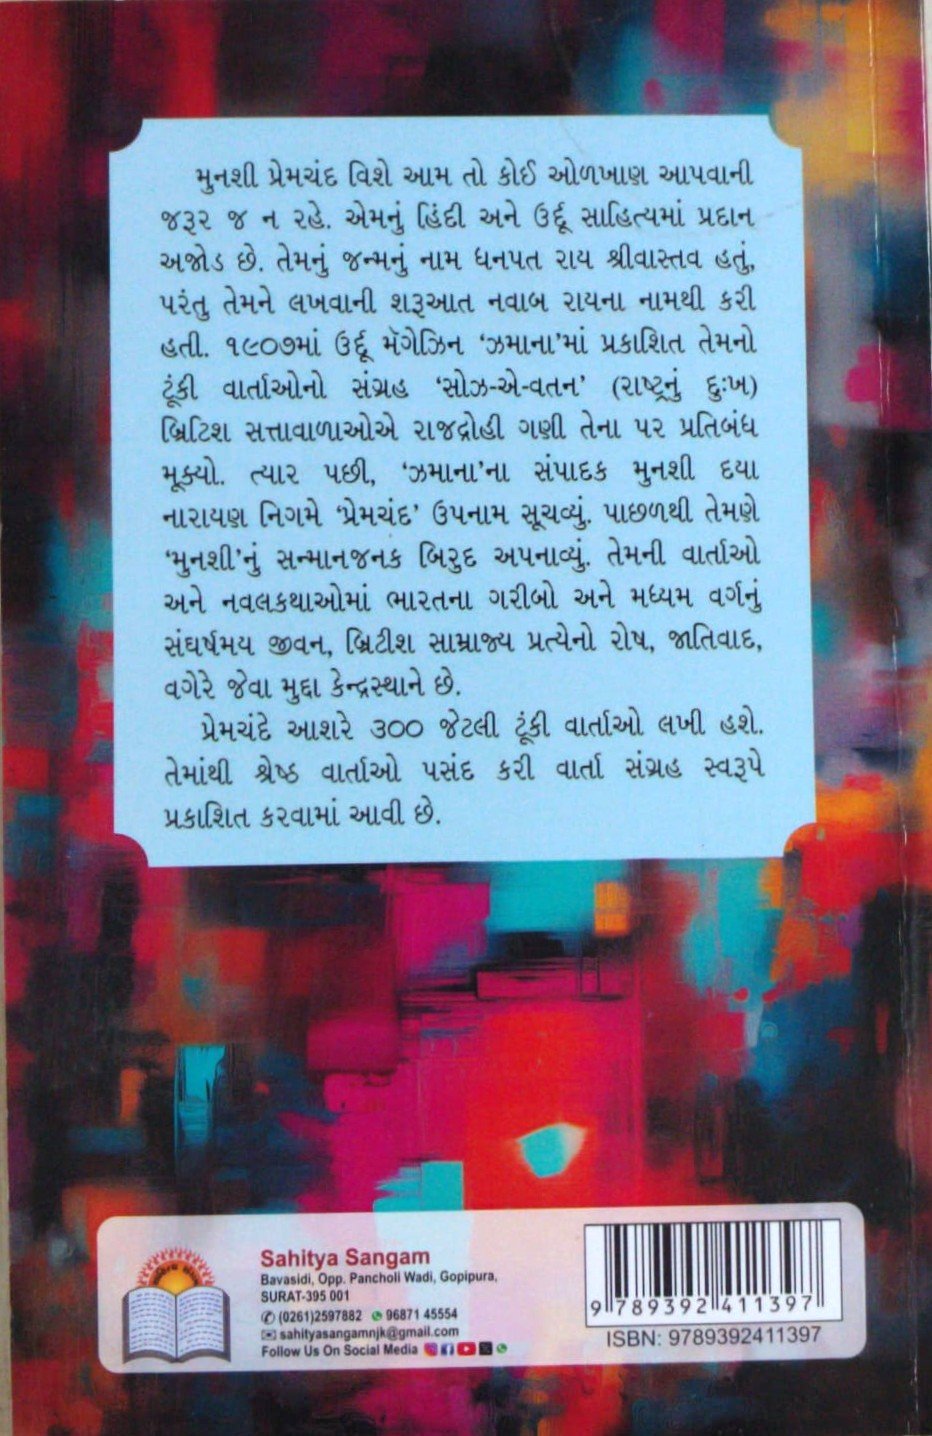 મુનશી પ્રેમચંદ વિશે આમ તો કોઈ ઓળખાણ આપવાની
જરૂર જ ન રહે. એમનું હિંદી અને ઉર્દૂ સાહિત્યમાં પ્રદાન
અજોડ છે. તેમનું જન્મનું નામ ધનપત રાય શ્રીવાસ્તવ હતું,
પરંતુ તેમને લખવાની શરૂઆત નવાબ રાયના નામથી કરી
હતી. ૧૯૦૭માં ઉર્દૂ મૅગેઝિન ‘ઝમાના’માં પ્રકાશિત તેમનો
ટૂંકી વાર્તાઓનો સંગ્રહ ‘સોઝ-એ-વતન’ (રાષ્ટ્રનું દુઃખ)
બ્રિટિશ સત્તાવાળાઓએ રાજદ્રોહી ગણી તેના પર પ્રતિબંધ
મૂક્યો. ત્યાર પછી, ‘ઝમાના’ના સંપાદક મુનશી દયા
નારાયણ નિગમે ‘પ્રેમચંદ’ ઉપનામ સૂચવ્યું. પાછળથી તેમણે
‘મુનશી’નું સન્માનજનક બિરુદ અપનાવ્યું. તેમની વાર્તાઓ
અને નવલકથાઓમાં ભારતના ગરીબો અને મધ્યમ વર્ગનું
સંઘર્ષમય જીવન, બ્રિટીશ સામ્રાજ્ય પ્રત્યેનો રોષ, જાતિવાદ,
વગેરે જેવા મુદ્દા કેન્દ્રસ્થાને છે.
પ્રેમચંદે આશરે ૩૦૦ જેટલી ટૂંકી વાર્તાઓ લખી હશે.
તેમાંથી શ્રેષ્ઠ વાર્તાઓ પસંદ કરી વાર્તા સંગ્રહ સ્વરૂપે
પ્રકાશિત કરવામાં આવી છે.
Sahitya Sangam
Bavasidi, Opp. Pancholi Wadi, Gopipura,
SURAT-395 001
(0261)2597882 96871 45554
sahityasangamnjk@gmail.com
Follow Us On Social Media
9 789392 411397
ISBN: 9789392411397